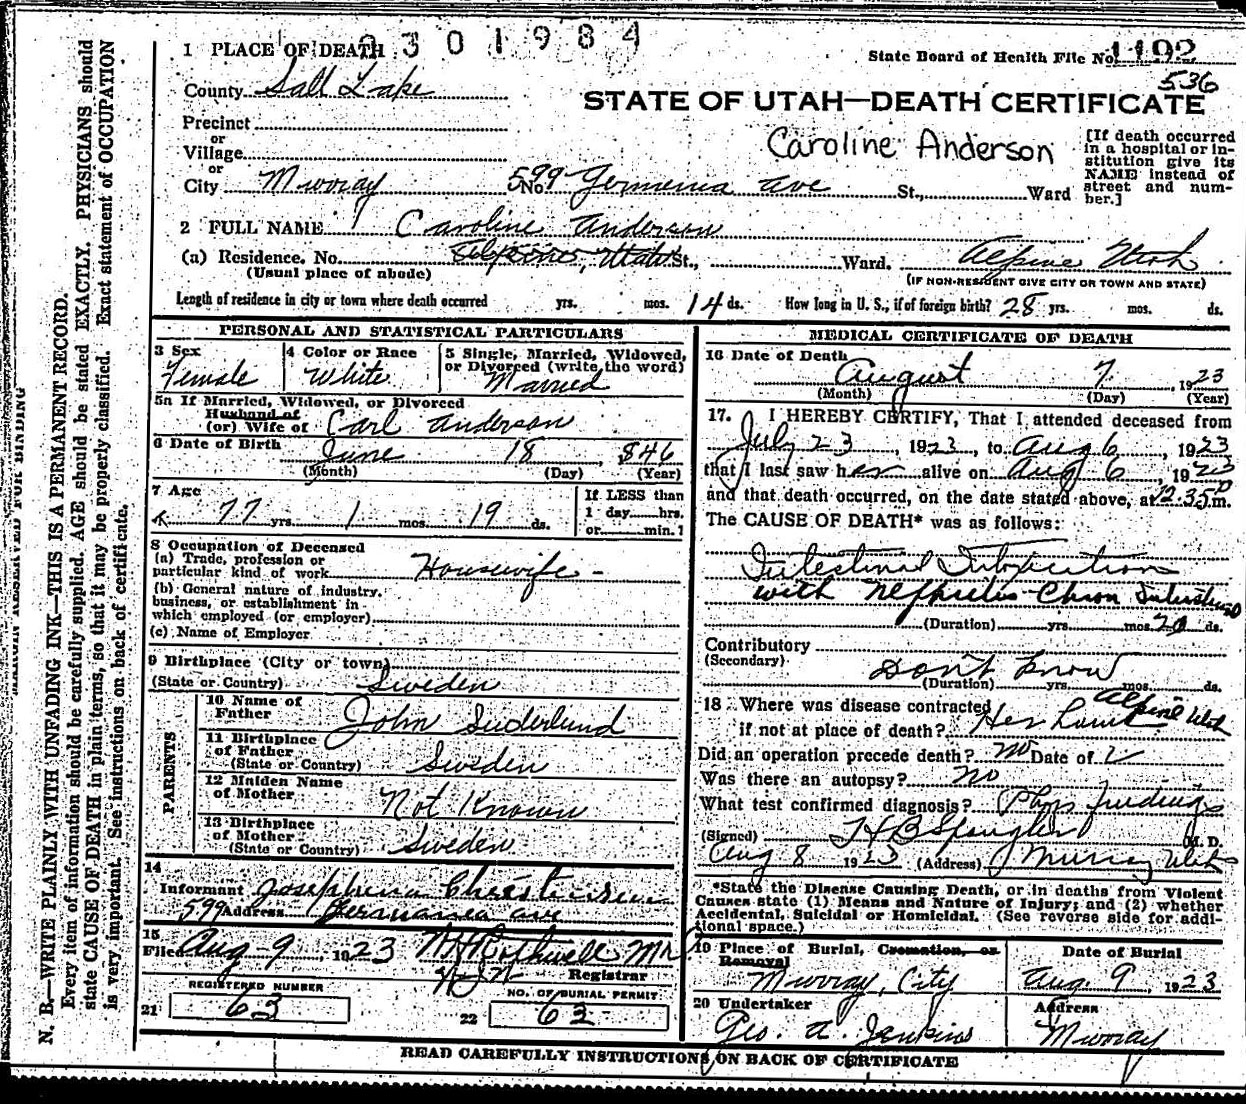 2301984
1 PLACE OF DEATH
State Board of Health File No. 1192
536
County Salt Lake
STATE OF UTAH—DEATH CERTIFICATE
Precinct
or
Village
or
City Murray No. 599 Germenia ave St., Ward
Caroline Anderson
[If death occurred
in a hospital or in-
stitution give its
NAME instead of
street and num-
ber.]
2 FULL NAME Caroline Anderson
(a) Residence. No. Alpine, Utah St., Ward. Alpine Utah
(Usual place of abode) (IF NON-RESIDENT GIVE CITY OR TOWN AND STATE)
Length of residence in city or town where death occurred yrs. mos. 14 ds. How long in U. S., if of foreign birth? 28 yrs. mos. ds.
PERSONAL AND STATISTICAL PARTICULARS
3 Sex
Female
4 Color or Race
White
5 Single, Married, Widowed,
or Divorced (write the word)
Married
5a If Married, Widowed, or Divorced
Husband of
(or) Wife of Carl Anderson
6 Date of Birth
June 18, 846
(Month) (Day) (Year)
7 Age
77 yrs. 1 mos. 19 ds.
If LESS than
1 day hrs.
or min.
8 Occupation of Deceased
(a) Trade, profession or
particular kind of work Housewife
(b) General nature of industry,
business, or establishment in
which employed (or employer)
(c) Name of Employer
9 Birthplace (City or town)
(State or Country) Sweden
PARENTS
10 Name of
Father John Suderlund
11 Birthplace
of Father
(State or Country) Sweden
12 Maiden Name
of Mother Not Known
13 Birthplace
of Mother
(State or Country) Sweden
14
Informant Josephina Christensen
Address 599 Germanea ave
15
Filed Aug-9, 1923 Rothwell
Registrar
REGISTERED NUMBER
21 63
NO. OF BURIAL PERMIT
22 63
MEDICAL CERTIFICATE OF DEATH
16 Date of Death
August 7, 1923
(Month) (Day) (Year)
17. I HEREBY CERTIFY, That I attended deceased from
July 23, 1923, to Aug 6, 1923
that I last saw her alive on Aug 6, 1923
and that death occurred, on the date stated above, at 12.35 m.
The CAUSE OF DEATH* was as follows:
Intestinal Intoxication
with Nephritis-Chron Interstitial
(Duration) yrs. mos. 20 ds.
Contributory
(Secondary) Don't know
(Duration) yrs. mos. ds.
18 Where was disease contracted
if not at place of death? Her home Alpine Utah
Did an operation precede death? no Date of
Was there an autopsy? no
What test confirmed diagnosis? Phys findings
(Signed) H B Spangler M. D.
Aug 8 1923 (Address) Murray Utah
*State the Disease Causing Death, or in deaths from Violent
Causes state (1) Means and Nature of Injury; and (2) whether
Accidental, Suicidal or Homicidal. (See reverse side for addi-
tional space.)
19 Place of Burial, Cremation, or
Removal
Murray, City
Date of Burial
Aug. 9, 1923
20 Undertaker
Geo. A. Jenkins
Address
Murray
READ CAREFULLY INSTRUCTIONS ON BACK OF CERTIFICATE
MARGIN RESERVED FOR BINDING
N. B.—WRITE PLAINLY WITH UNFADING INK—THIS IS A PERMANENT RECORD.
Every item of information should be carefully supplied. AGE should be stated EXACTLY. PHYSICIANS should
state CAUSE OF DEATH in plain terms, so that it may be properly classified. Exact statement of OCCUPATION
is very important. See instructions on back of certificate.